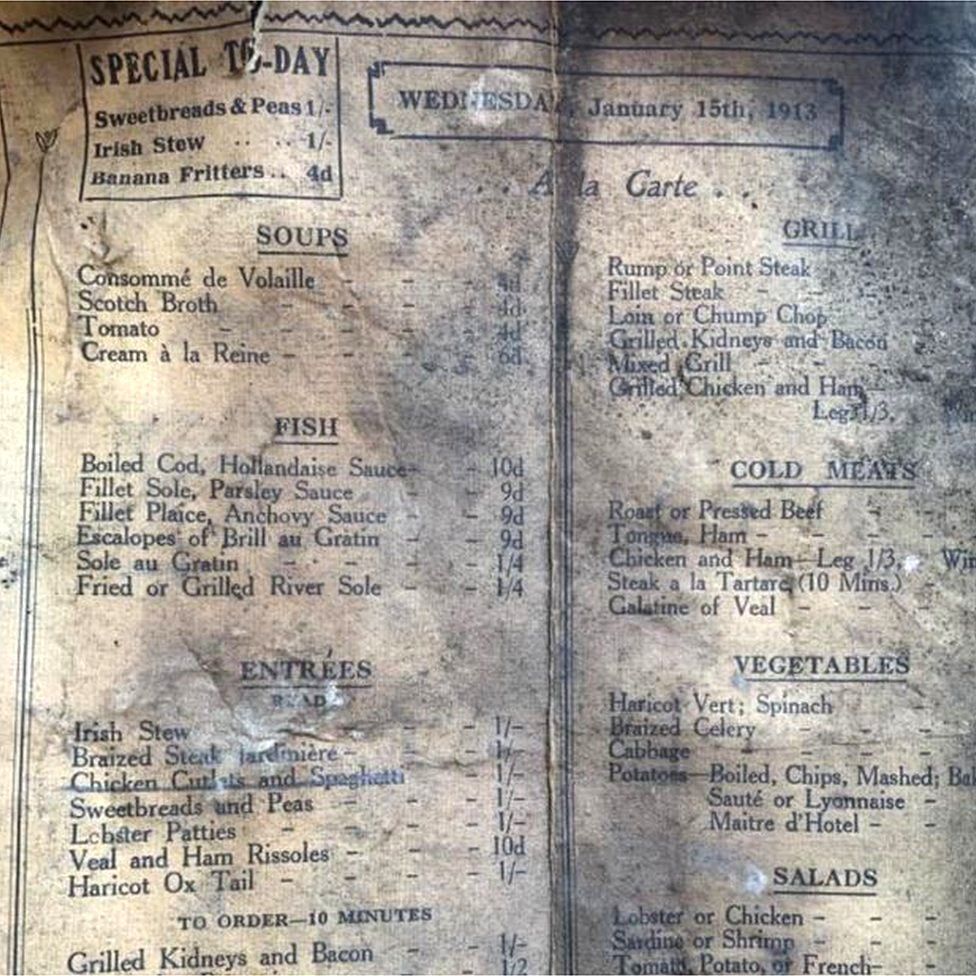 SPECIAL TO-DAY
Sweetbreads & Peas 1/-
Irish Stew .. .. 1/-
Banana Fritters .. 4d
WEDNESDAY, January 15th, 1913
. . A la Carte . .
SOUPS
Consommé de Volaille - - - 4d
Scotch Broth - - - - 4d
Tomato - - - - - 4d
Cream à la Reine - - - - 6d
FISH
Boiled Cod, Hollandaise Sauce - - 10d
Fillet Sole, Parsley Sauce - - 9d
Fillet Plaice, Anchovy Sauce - - 9d
Escalopes of Brill au Gratin - - 9d
Sole au Gratin - - - - 1/4
Fried or Grilled River Sole - - 1/4
ENTRÉES
READY
Irish Stew - - - - 1/-
Braized Steak Jardinière - - - 1/-
Chicken Cutlets and Spaghetti - - 1/-
Sweetbreads and Peas - - - 1/-
Lobster Patties - - - - 1/-
Veal and Ham Rissoles - - - 10d
Haricot Ox Tail - - - - 1/-
TO ORDER—10 MINUTES
Grilled Kidneys and Bacon - - 1/-
1/2
GRILL
Rump or Point Steak
Fillet Steak -
Loin or Chump Chop
Grilled Kidneys and Bacon
Mixed Grill - -
Grilled Chicken and Ham—
Leg 1/3.
COLD MEATS
Roast or Pressed Beef - -
Tongue, Ham - - - -
Chicken and Ham—Leg 1/3,
Steak a la Tartare (10 Mins.) -
Galatine of Veal - - -
VEGETABLES
Haricot Vert; Spinach
Braized Celery - - -
Cabbage - - - -
Potatoes—Boiled, Chips, Mashed;
Sauté or Lyonnaise -
Maitre d'Hotel - -
SALADS
Lobster or Chicken - - -
Sardine or Shrimp - - -
Tomato, Potato, or French- -